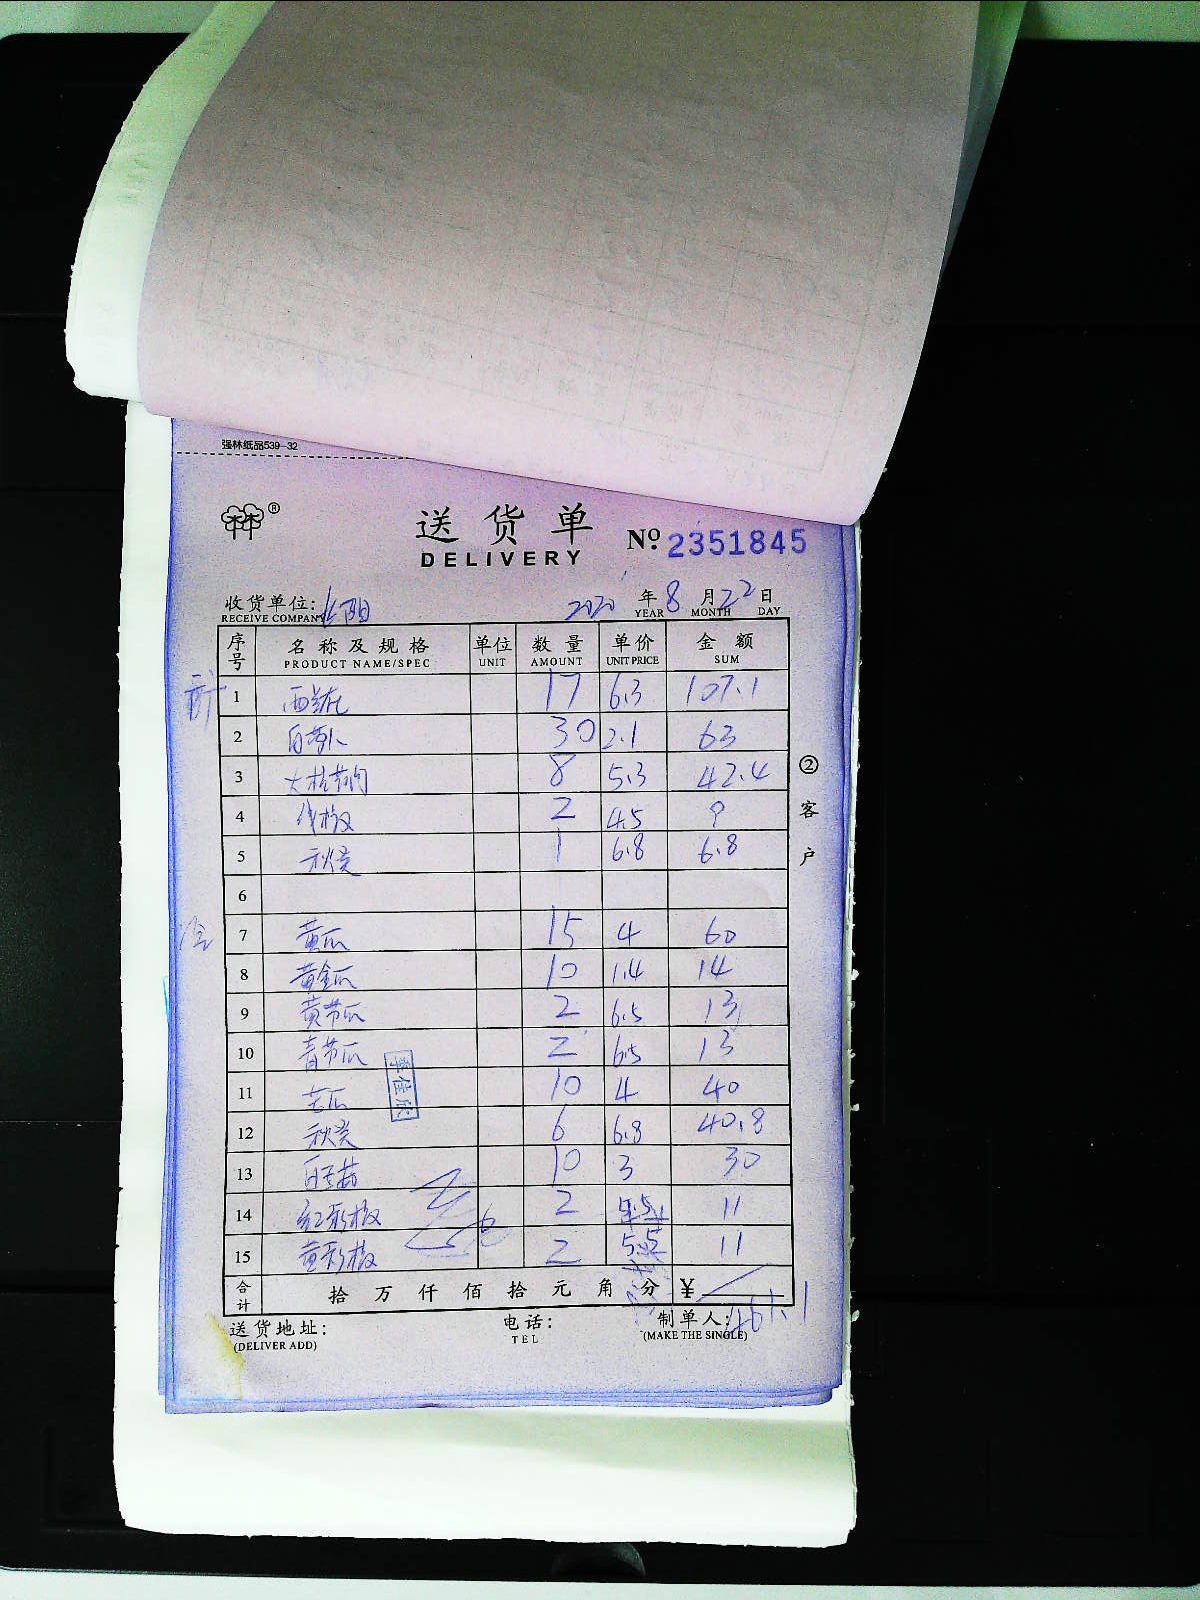 强林纸品539-32
送货单 No. 2351845
DELIVERY
收货单位: 2020 年 8 月 22 日
RECEIVE COMPANY YEAR MONTH DAY
序号 名称及规格 单位 数量 单价 金额
PRODUCT NAME/SPEC UNIT AMOUNT UNIT PRICE SUM
1 西兰花 17 6.3 107.1
2 白萝卜 30 2.1 63
3 8 5.3 42.4
4 线椒 2 4.5 9
5 秋葵 1 6.8 6.8
6
7 黄瓜 15 4 60
8 黄金瓜 10 1.4 14
9 黄节瓜 2 6.5 13
10 青节瓜 2 6.5 13
11 苦瓜 10 4 40
12 秋葵 6 6.8 40.8
13 10 3 30
14 红彩椒 2 5.5 11
15 黄彩椒 2 5.5 11
合计 拾万仟佰拾元角分 ¥ 461.1
②客户
送货地址: 电话: 制单人:
(DELIVER ADD) TEL (MAKE THE SINGLE)